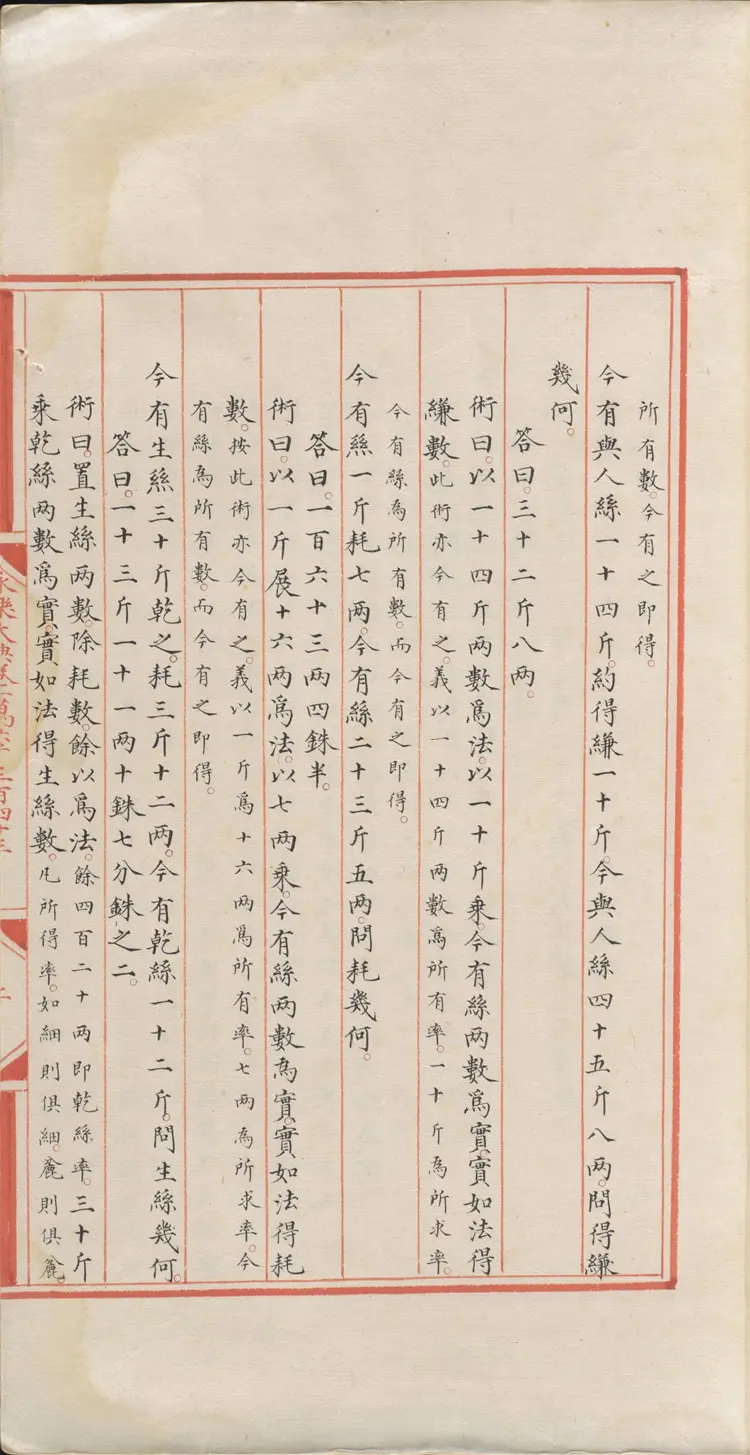 所有數。今有之即得。
今有與人絲一十四斤。約得縑一十斤。今與人絲四十五斤八两。問得縑
幾何。
答曰。三十二斤八两。
術曰。以一十四斤两數爲法。以一十斤乘。今有絲两數爲實。實如法得
縑數。此術亦今有之。義以一十四斤两數爲所有率。一十斤爲所求率。
今有絲爲所有數。而今有之即得。
今有絲一斤耗七两。今有絲二十三斤五两。問耗幾何。
答曰。一百六十三两四銖半。
術曰。以一斤展十六两爲法。以七两乘。今有絲两數爲實。實如法得耗
數。按此術亦今有之。義以一斤爲十六两爲所有率。七两爲所求率。今
有絲爲所有數。而今有之即得。
今有生絲三十斤乾之。耗三斤十二两。今有乾絲一十二斤。問生絲幾何。
答曰。一十三斤一十一两十銖七分銖之二。
術曰。置生絲两數。除耗數。餘以爲法。餘四百二十两即乾絲率。三十斤
乘乾絲两數爲實。實如法得生絲數。凡所得率。如細則俱細。麄則俱麄。
永樂大典卷一萬六千三百四十三